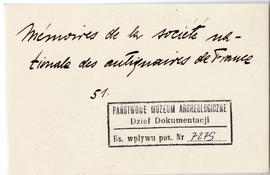 Mémoires de la société na-
tionale des antiquaires de France
51.
PAŃSTWOWE MUZEUM ARCHEOLOGICZNE
Dział Dokumentacji
Ks. wpływu poz. Nr 7279